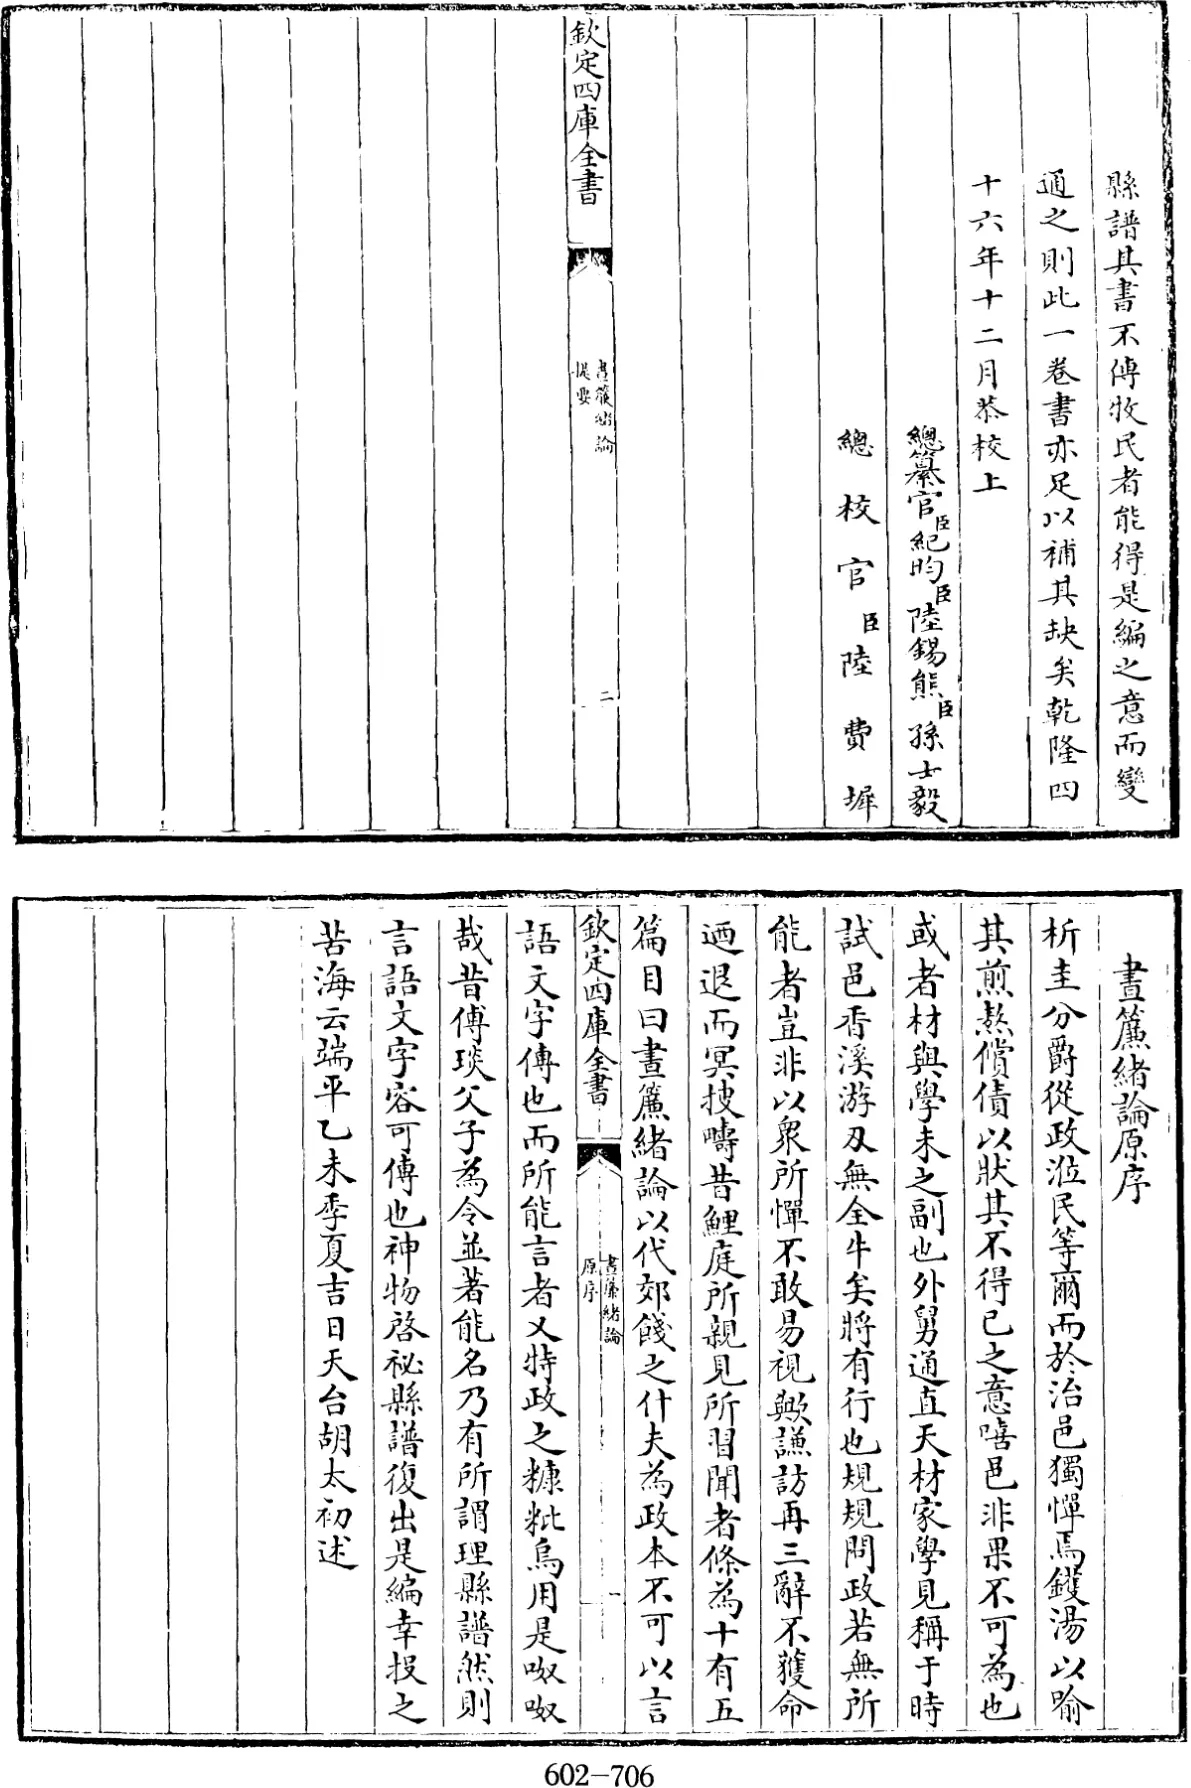 縣譜其書不傳牧民者能得是編之意而變
通之則此一卷書亦足以補其缺矣乾隆四
十六年十二月恭校上
總纂官臣紀昀臣陸錫熊臣孫士毅
總校官臣陸費墀
欽定四庫全書
晝簾緒論
提要
二
晝簾緒論原序
析圭分爵從政涖民等爾而於治邑獨憚焉鑊湯以喻
其煎熬償債以狀其不得已之意嘻邑非果不可為也
或者材與學未之副也外舅通直天材家學見稱于時
試邑香溪游刃無全牛矣將有行也規規問政若無所
能者豈非以衆所憚不敢易視歟謙訪再三辭不獲命
迺退而冥搜疇昔鯉庭所親見所習聞者條為十有五
篇目曰晝簾緒論以代郊餞之什夫為政本不可以言
欽定四庫全書
晝簾緒論
原序
一
語文字傳也而所能言者又特政之糠粃烏用是呶呶
哉昔傅琰父子為令並著能名乃有所謂理縣譜然則
言語文字容可傳也神物啓祕縣譜復出是編幸投之
苦海云端平乙未季夏吉日天台胡太初述
602-706